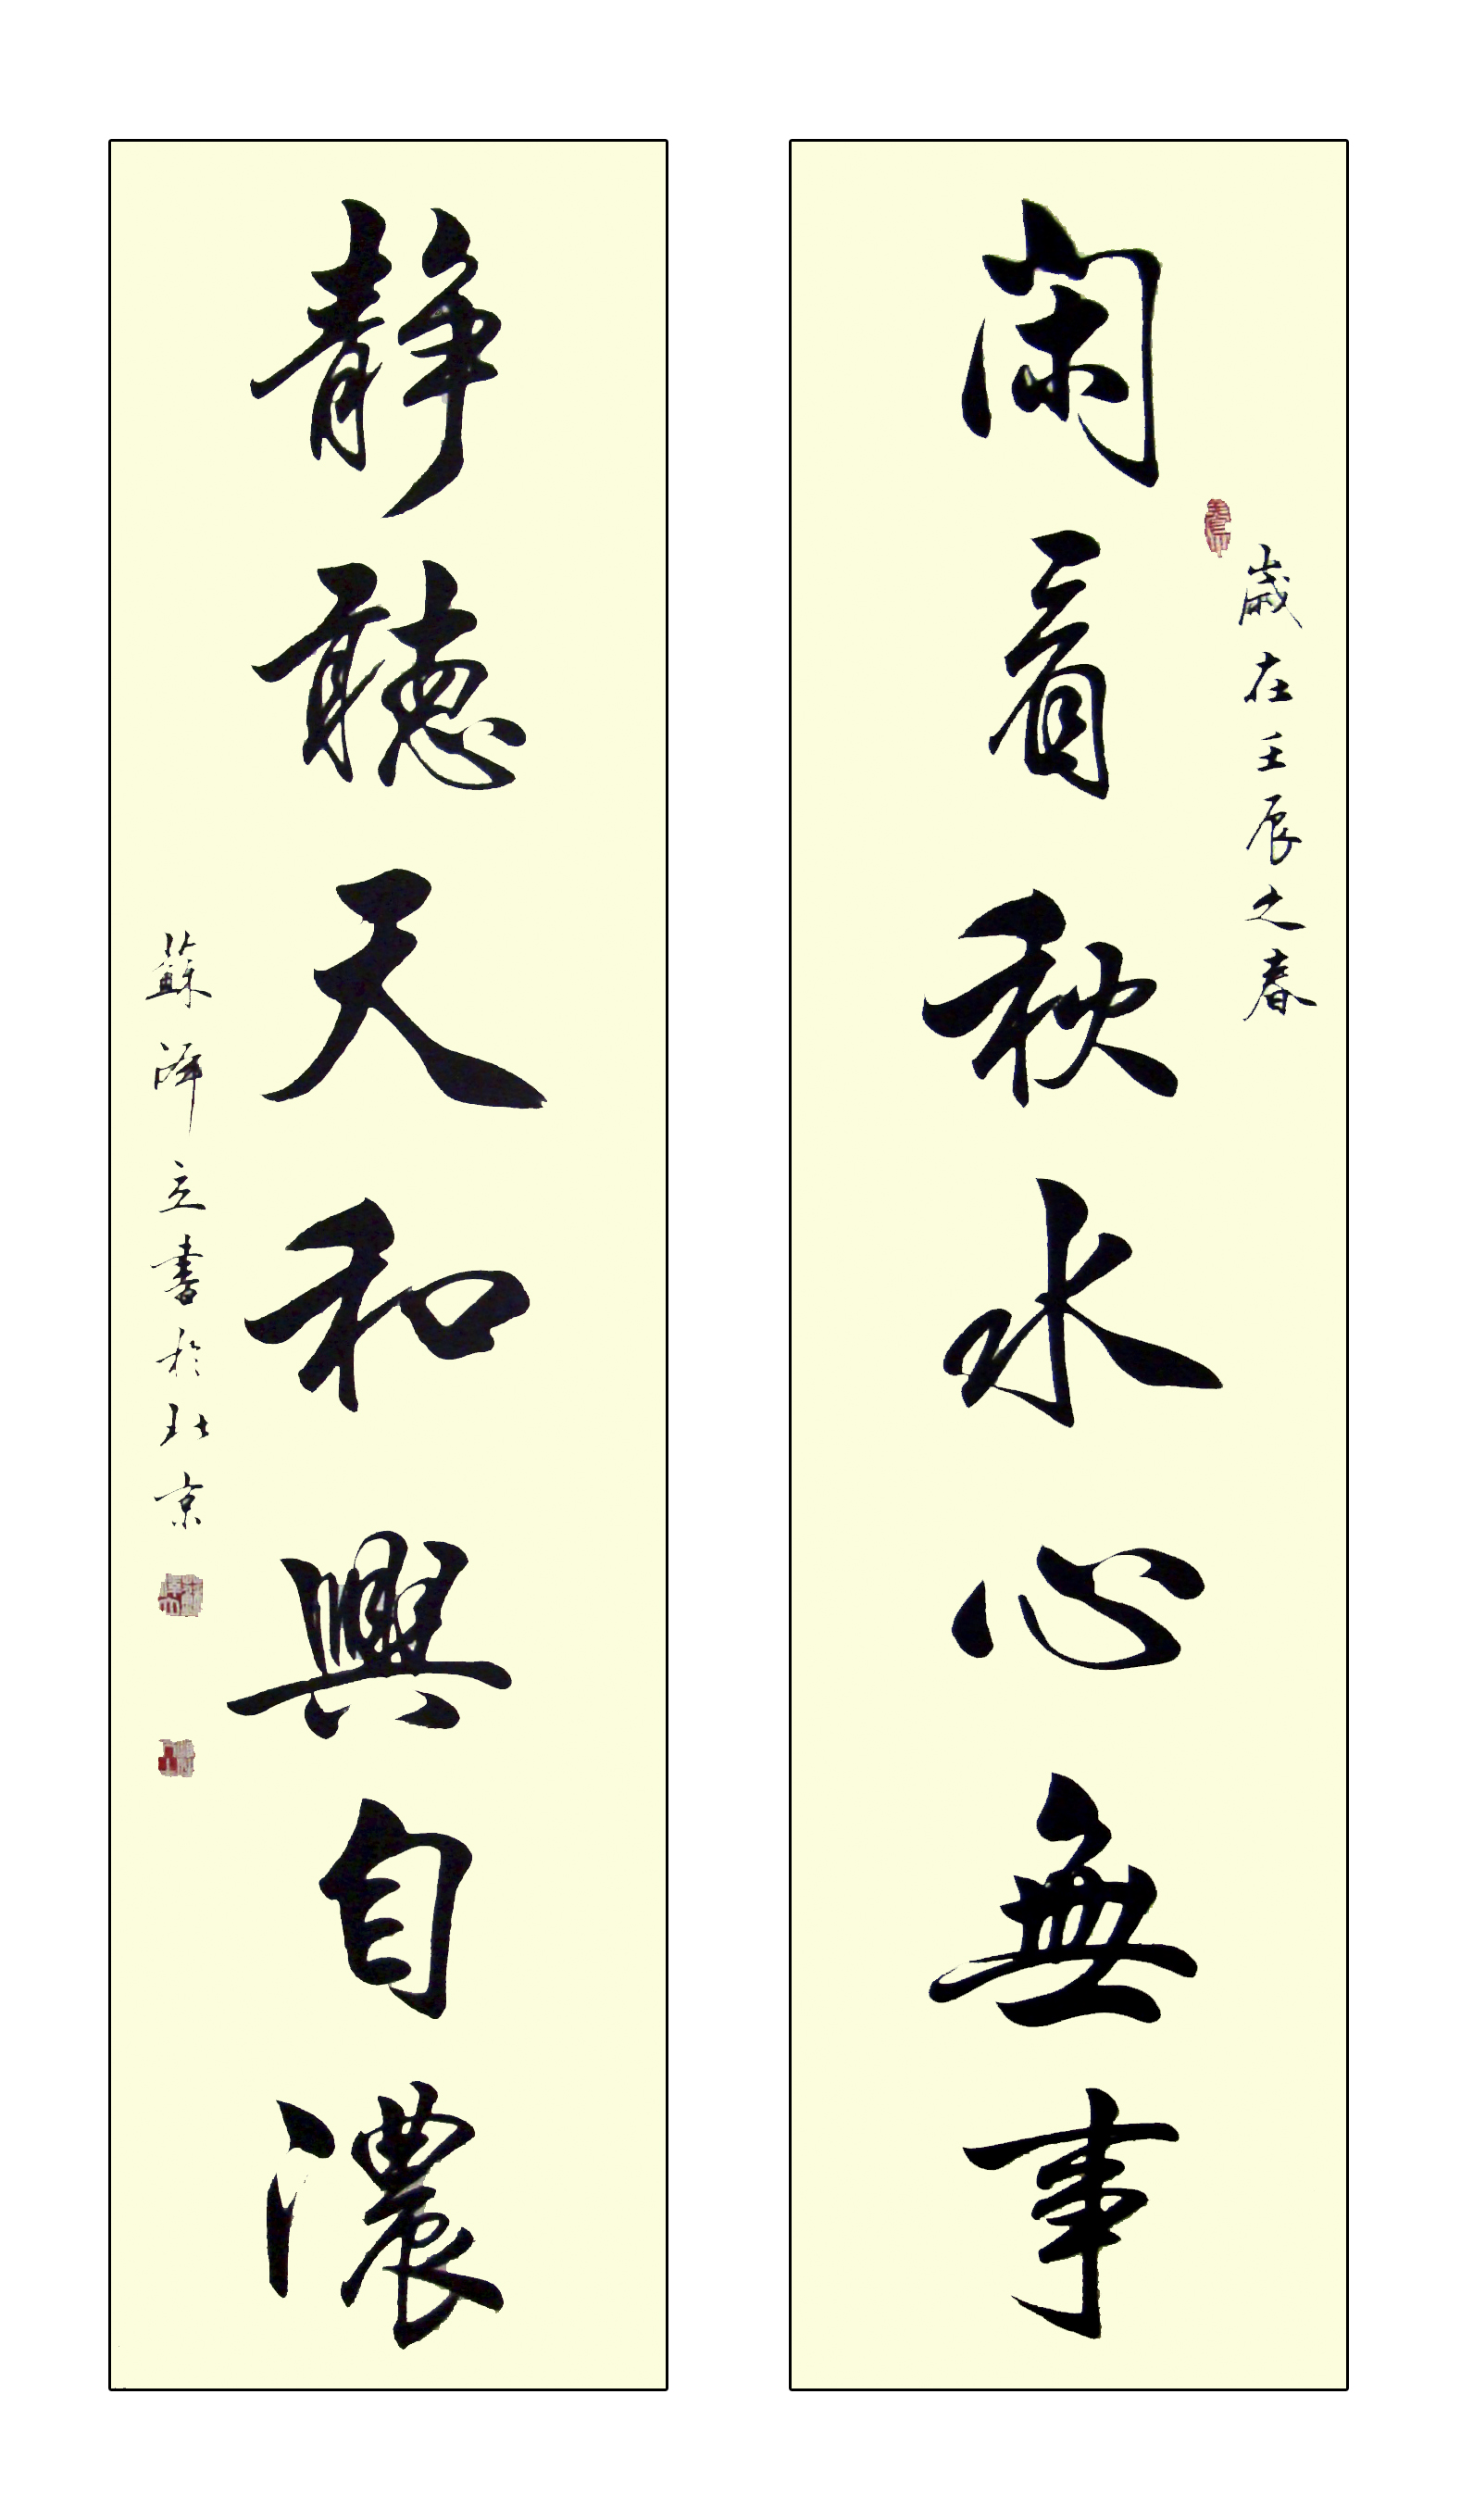 閑看秋水心無事
歲在壬辰之春
静聽天和興自濃
蘇師立書於北京